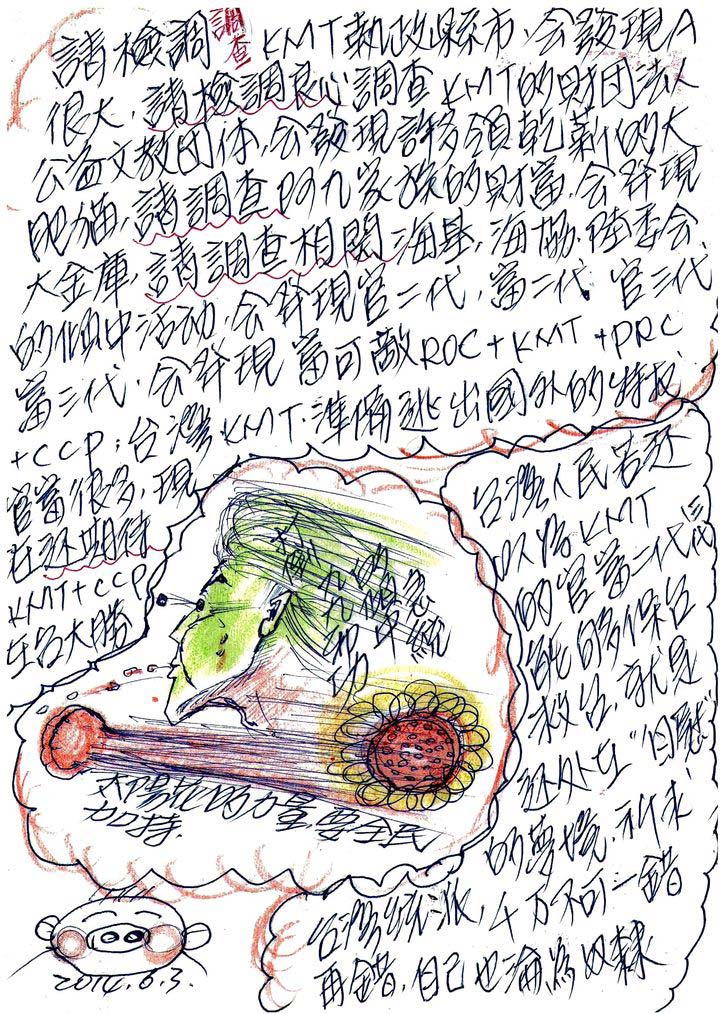 請檢調調查KMT執政縣市,会發現A
很大,請檢調良心調查KMT的財团法人
公益文教团体,会發現許多領乾薪的大
肥貓,請調查阿九家族的財富,会發現
大金庫,請調查相関海基,海協,陸委会
的傾中活动,会發現官二代,富二代,官三代
富三代,会發現富可敵ROC+KMT+PRC
+CCP;台灣KMT準備逃出國外的特权
官富很多,現
在还期待
KMT+CCP
在台大勝
台灣人民若还
以為KMT
的官富二代三代
能够保台
救台,就是
还处在"自慰"
的夢境,祈求
台灣統派,千万不可一錯
再錯,自己也淪為奴隸
太陽花的力量要全民
加持.
2014.6.3.